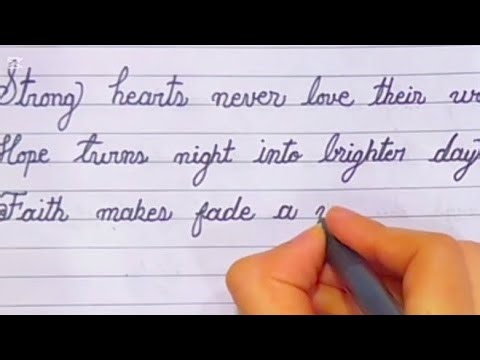 Strong hearts never love their
Hope turns night into brighter day
Faith makes fade a